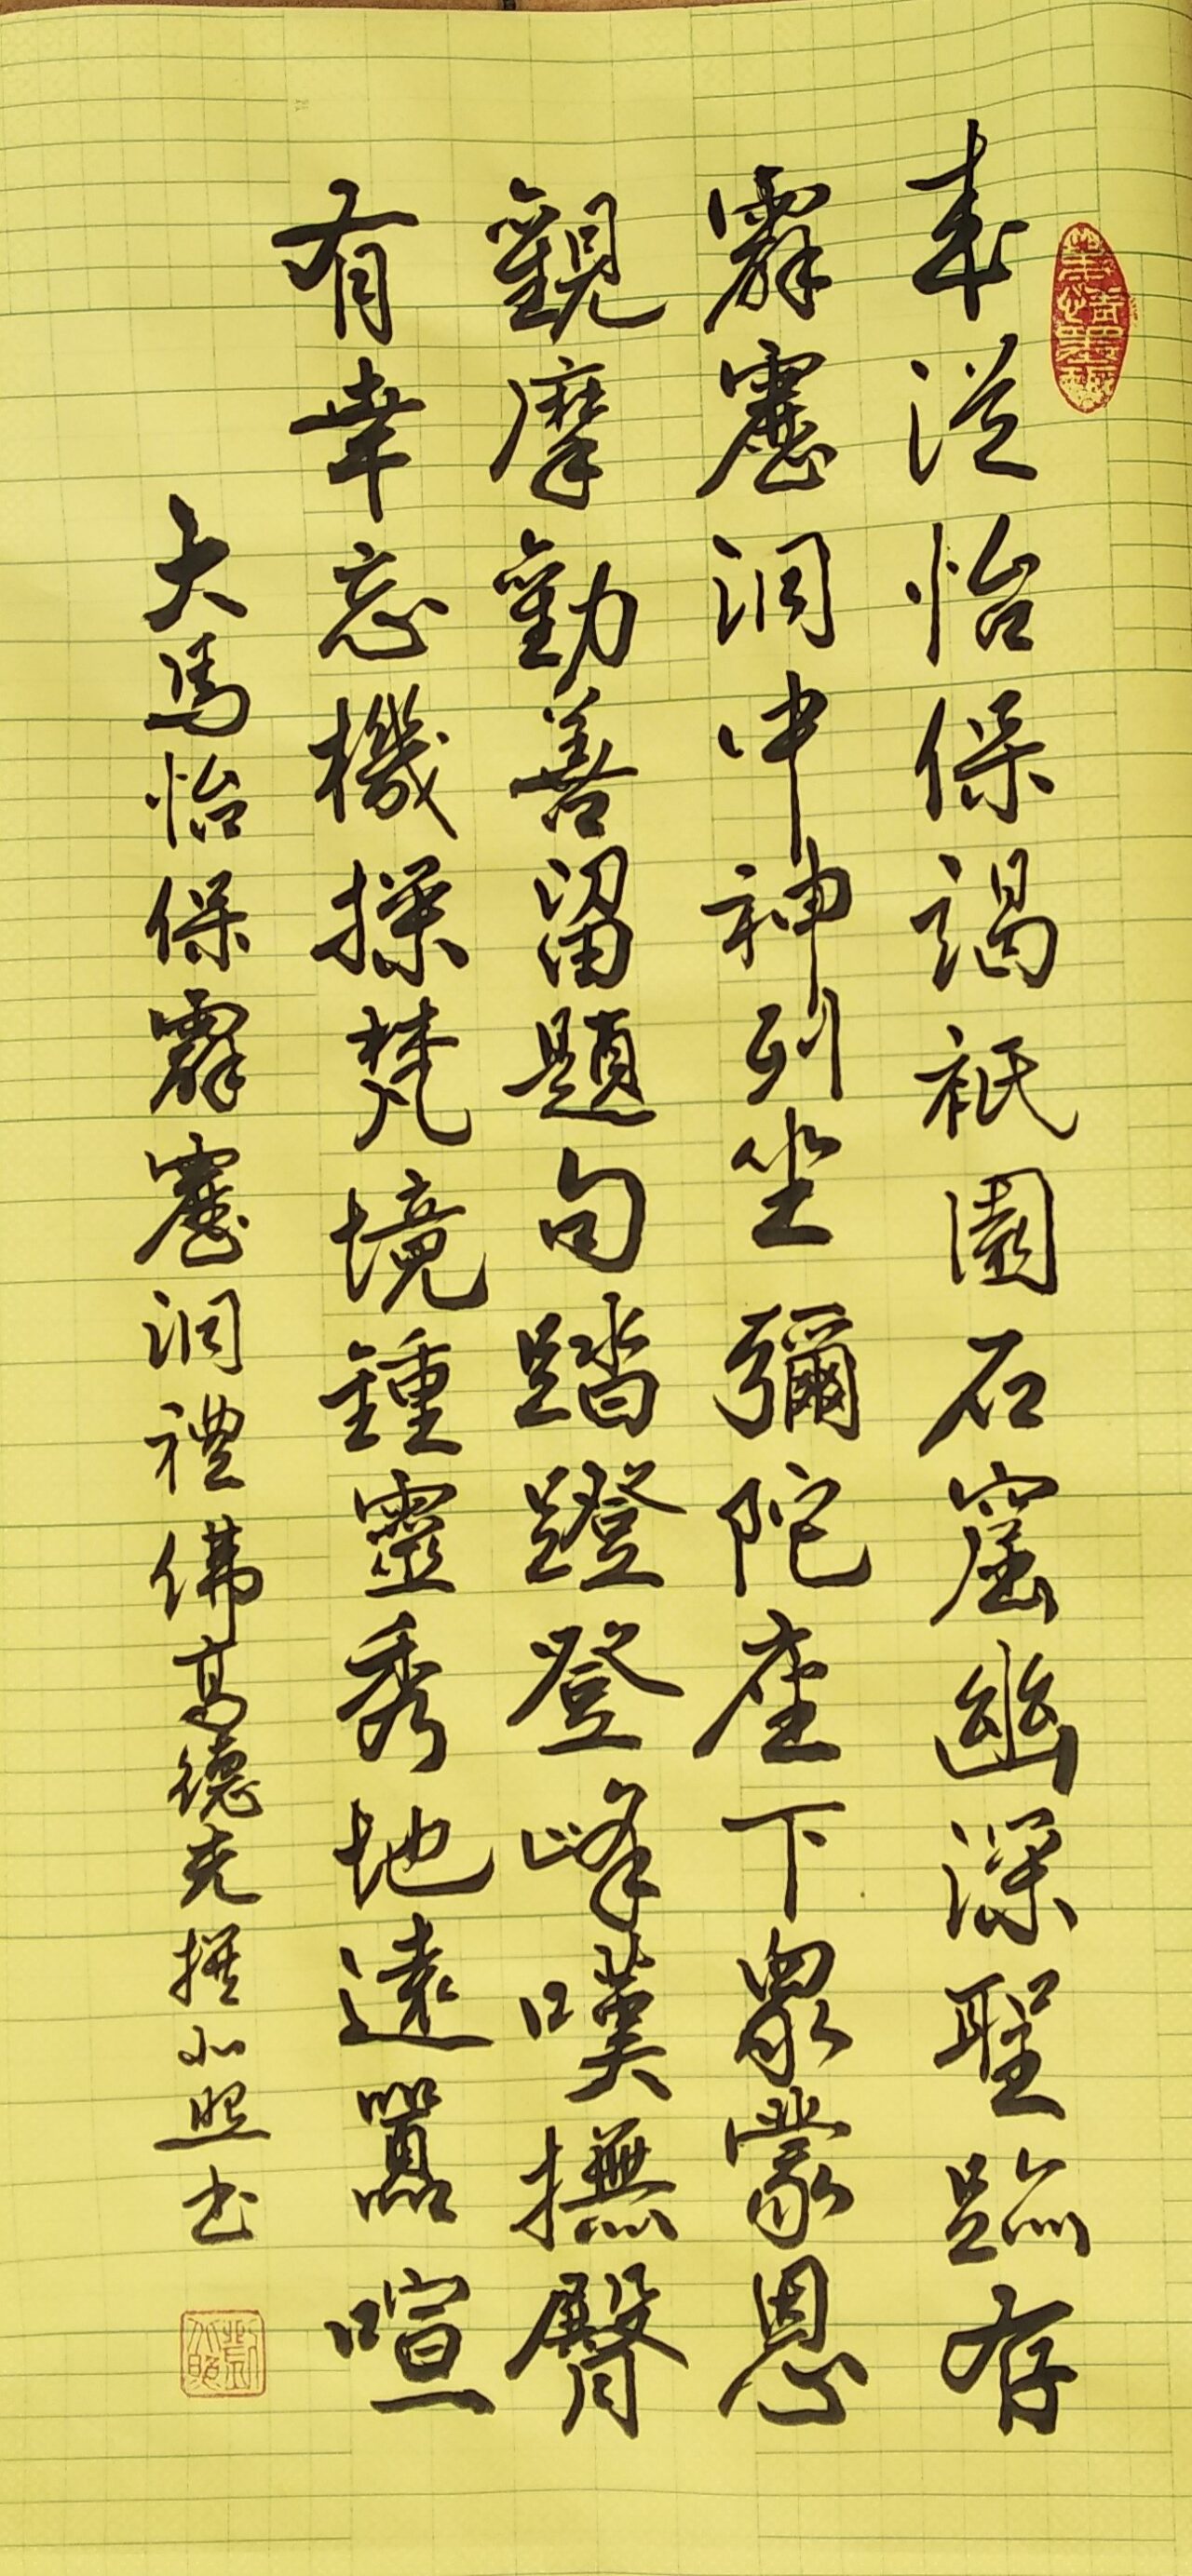 来從怡保謁祇園石窟幽深聖跡存
霹靂洞中神列坐彌陀座下眾蒙恩
觀摩勸善留題句踏蹬登峰嘆撫臀
有幸忘機探梵境鍾靈秀地遠囂喧
大馬怡保霹靂洞禮佛高德光撰照书